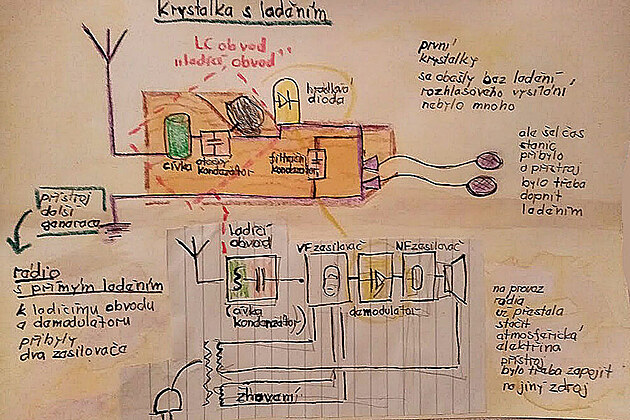 Krystalka s laděním
LC obvod
"ladící obvod"
hrotová
dioda
cívka
otočný
kondenzátor
filtrační
kondenzátor
první
krystalky
se obešly bez ladění,
rozhlasového vysílání
nebylo mnoho
ale šel čas
stanic
přibylo
a přístroj
bylo třeba
doplnit
laděním
přístroj
další
generace
radio
s přímým laděním
k ladícímu obvodu
a demodulátoru
přibyly
dva zasilovače
ladící
obvod
(cívka
kondenzátor)
VF zasilovač
demodulátor
NF zasilovač
žhavení
na provoz
rádia
už přestala
stačit
atmosférická
elektřina
přístroj
bylo třeba zapojit
na jiný zdroj